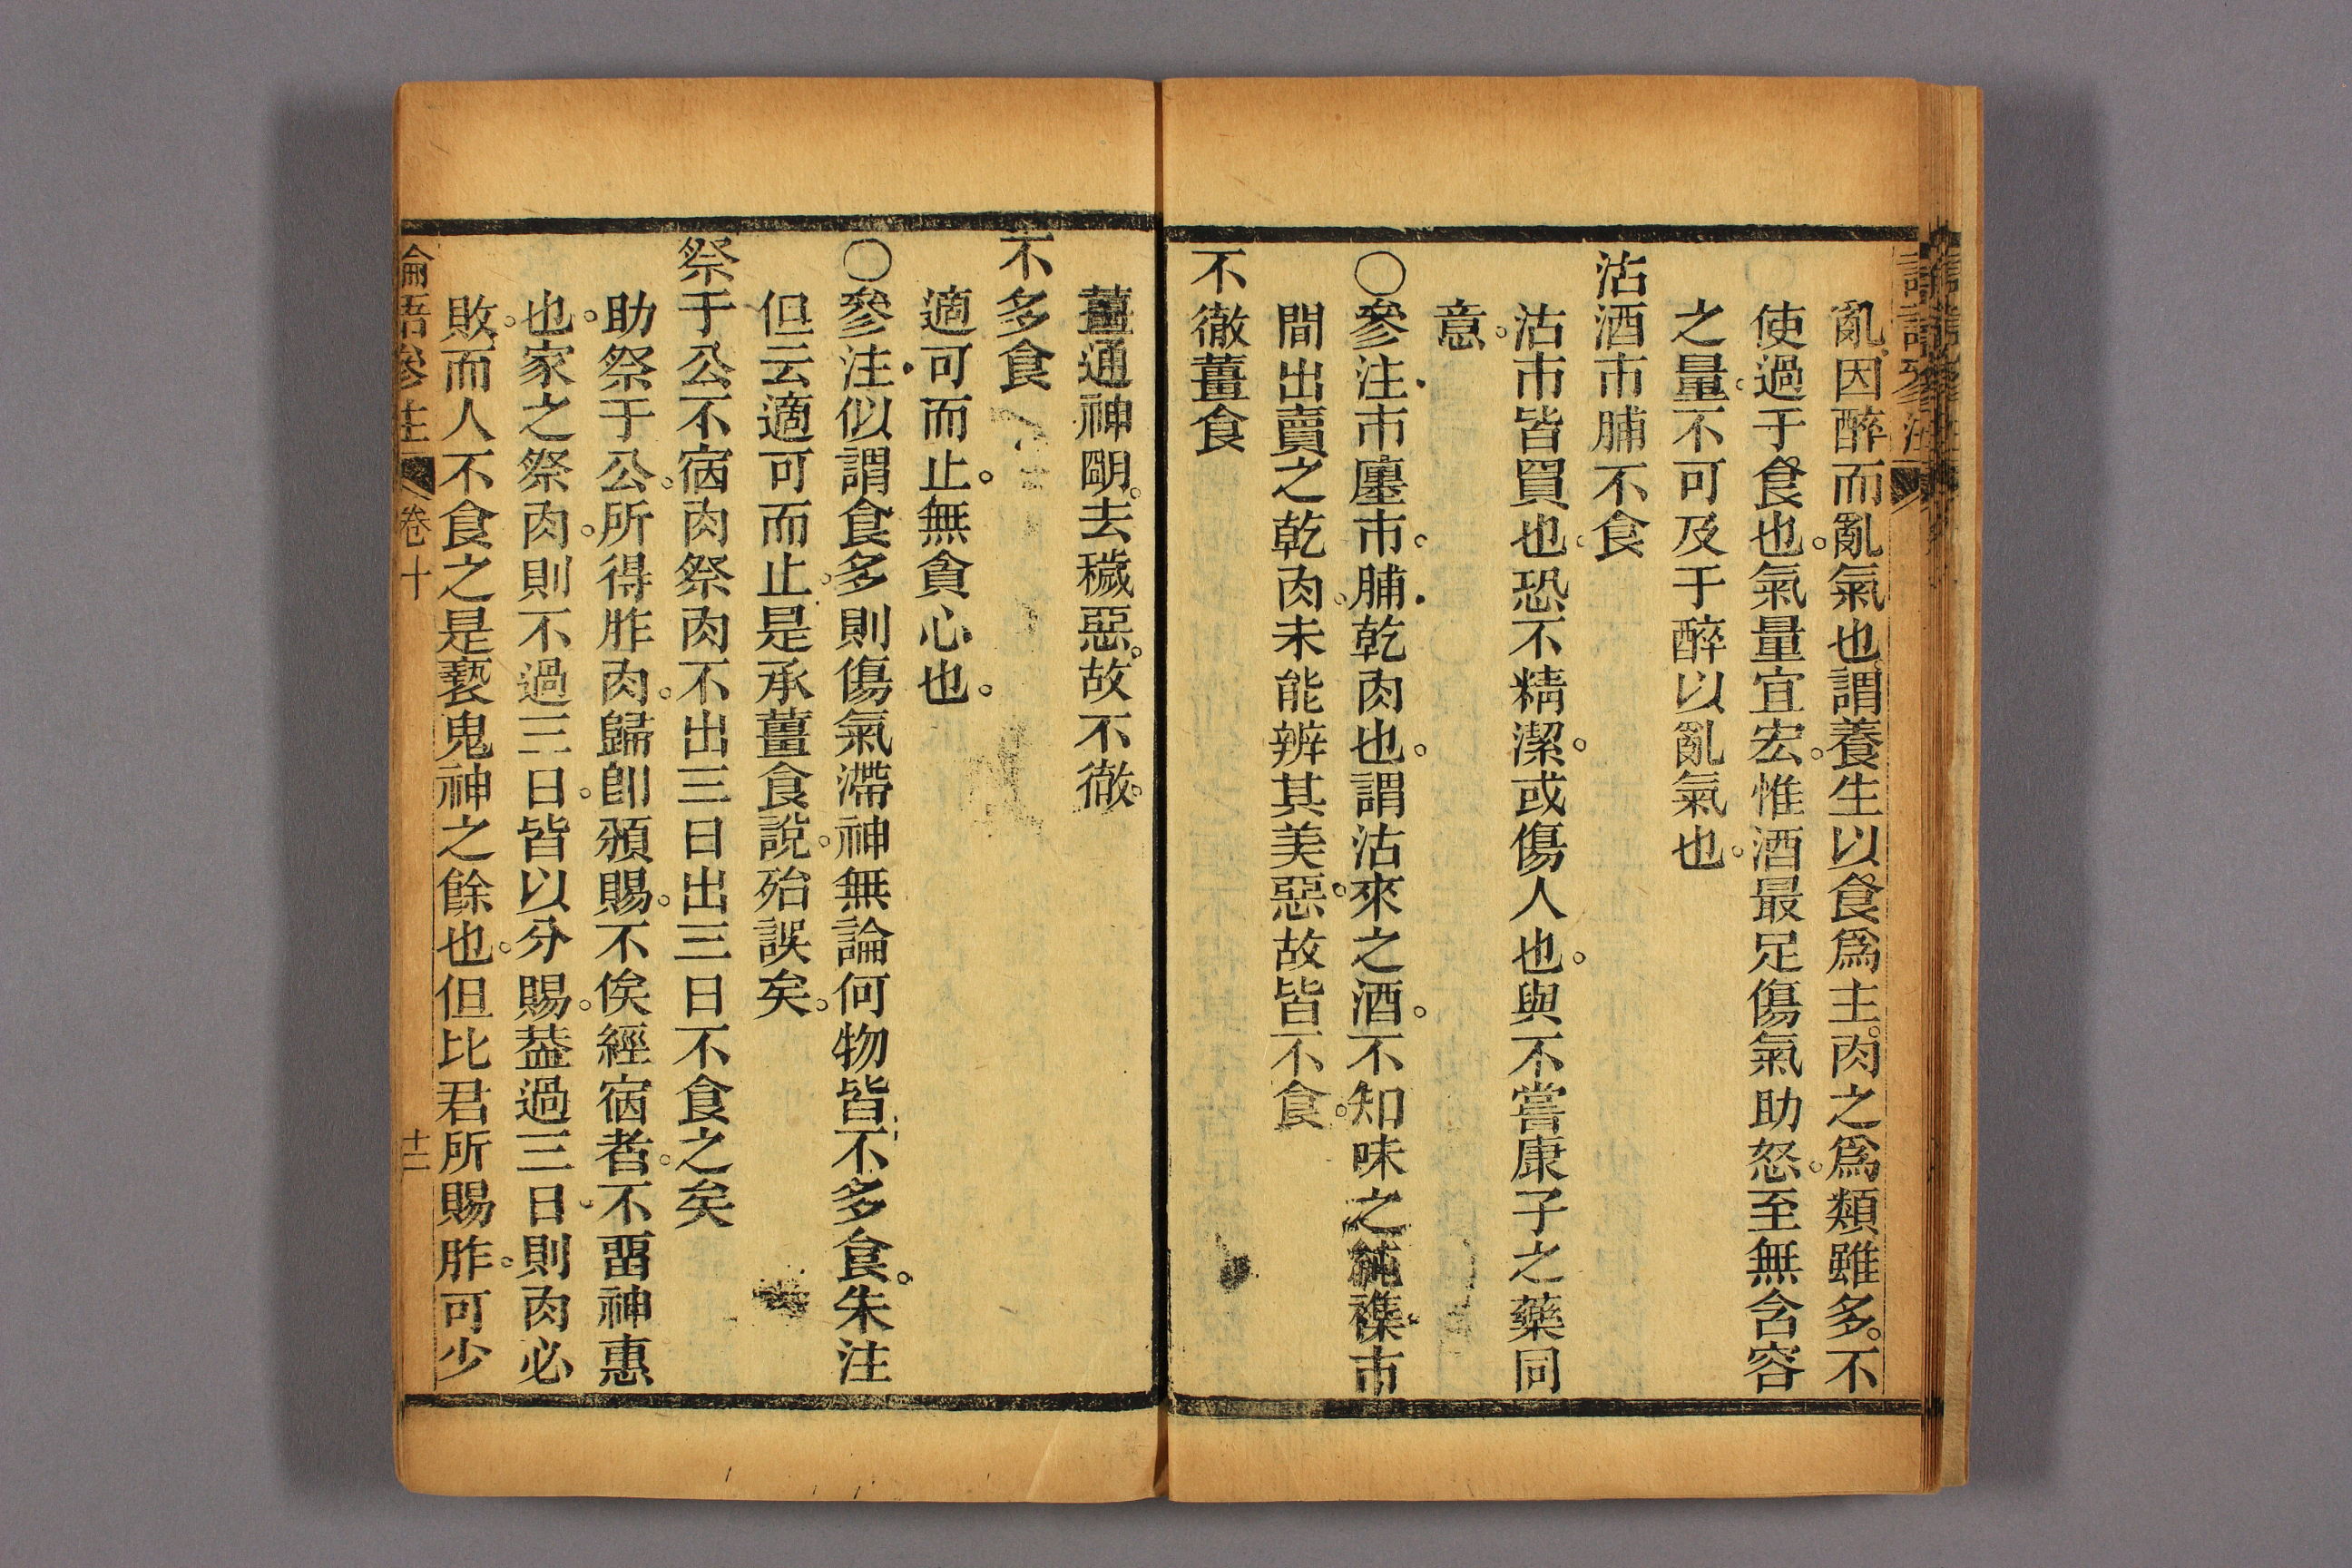 亂因醉而亂氣也謂養生以食爲主肉之爲類雖多不
使過于食也氣量宜宏惟酒最足傷氣助怒至無含容
之量不可及于醉以亂氣也
沽酒市脯不食
沽市皆買也恐不精潔或傷人也與不嘗康子之藥同
意
〇參注市廛市脯乾肉也謂沽來之酒不知味之純襍市
間出賣之乾肉未能辨其美惡故皆不食
不徹薑食
薑通神明去穢惡故不徹
不多食
適可而止無貪心也
〇參注似謂食多則傷氣滯神無論何物皆不多食朱注
但云適可而止是承薑食說殆誤矣
祭于公不宿肉祭肉不出三日出三日不食之矣
助祭于公所得胙肉歸卽頒賜不俟經宿者不畱神惠
也家之祭肉則不過三日皆以分賜葢過三日則肉必
敗而人不食之是褻鬼神之餘也但比君所賜胙可少
論語參注 卷十 十二